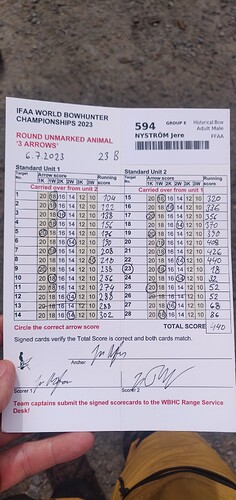 IFAA WORLD BOWHUNTER
CHAMPIONSHIPS 2023
594 GROUP E Historical Bow
Adult Male
NYSTRÖM Jere FFAA
ROUND UNMARKED ANIMAL
'3 ARROWS'
6.7.2023 23 B
Standard Unit 1 Standard Unit 2
Target No. Arrow score Running score Target No. Arrow score Running score
1K 1W 2K 2W 3K 3W 1K 1W 2K 2W 3K 3W
Carried over from unit 2 Carried over from unit 1
1 20 18 16 14 12 10 104 15 20 18 16 14 12 10 320
2 20 18 16 14 12 10 122 16 20 18 16 14 12 10
3 20 18 16 14 12 10 138 17 20 18 16 14 12 10 356
4 20 18 16 14 12 10 156 18 20 18 16 14 12 10 370
5 20 18 16 14 12 10 176 19 20 18 16 14 12 10 390
6 20 18 16 14 12 10 190 20 20 18 16 14 12 10 408
7 20 18 16 14 12 10 208 21 20 18 16 14 12 10 426
8 20 18 16 14 12 10 218 22 20 18 16 14 12 10 440
9 20 18 16 14 12 10 238 23 20 18 16 14 12 10 18
10 20 18 16 14 12 10 256 24 20 18 16 14 12 10 32
11 20 18 16 14 12 10 274 25 20 18 16 14 12 10 52
12 20 18 16 14 12 10 288 26 20 18 16 14 12 10 52
13 20 18 16 14 12 10 288 27 20 18 16 14 12 10 68
14 20 18 16 14 12 10 302 28 20 18 16 14 12 10 86
Circle the correct arrow score TOTAL SCORE 440
Signed cards verify the Total Score is correct and both cards match.
Archer:
Scorer 1 Scorer 2
Team captains submit the signed scorecards to the WBHC Range Service
Desk!